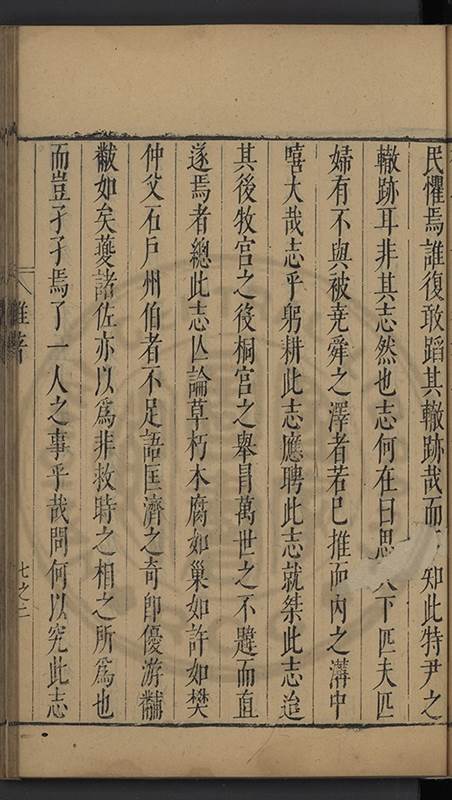 民懼焉誰復敢蹈其轍跡哉而知此特尹之
轍跡耳非其志然也志何在曰思下匹夫匹
婦有不與被堯舜之澤者若已推而內之溝中
嘻大哉志乎躬耕此志應聘此志就桀此志造
其後牧宮之後桐宮之舉冐萬世之不韙而直
遂焉者總此志仏論草朽木腐如巢如許如樊
仲父石戶州伯者不足語匡濟之奇卽優游黼
黻如矢夔諸佐亦以爲非救時之相之所爲也
而豈孑孑焉了一人之事乎哉問何以究此志
雜著
七之二